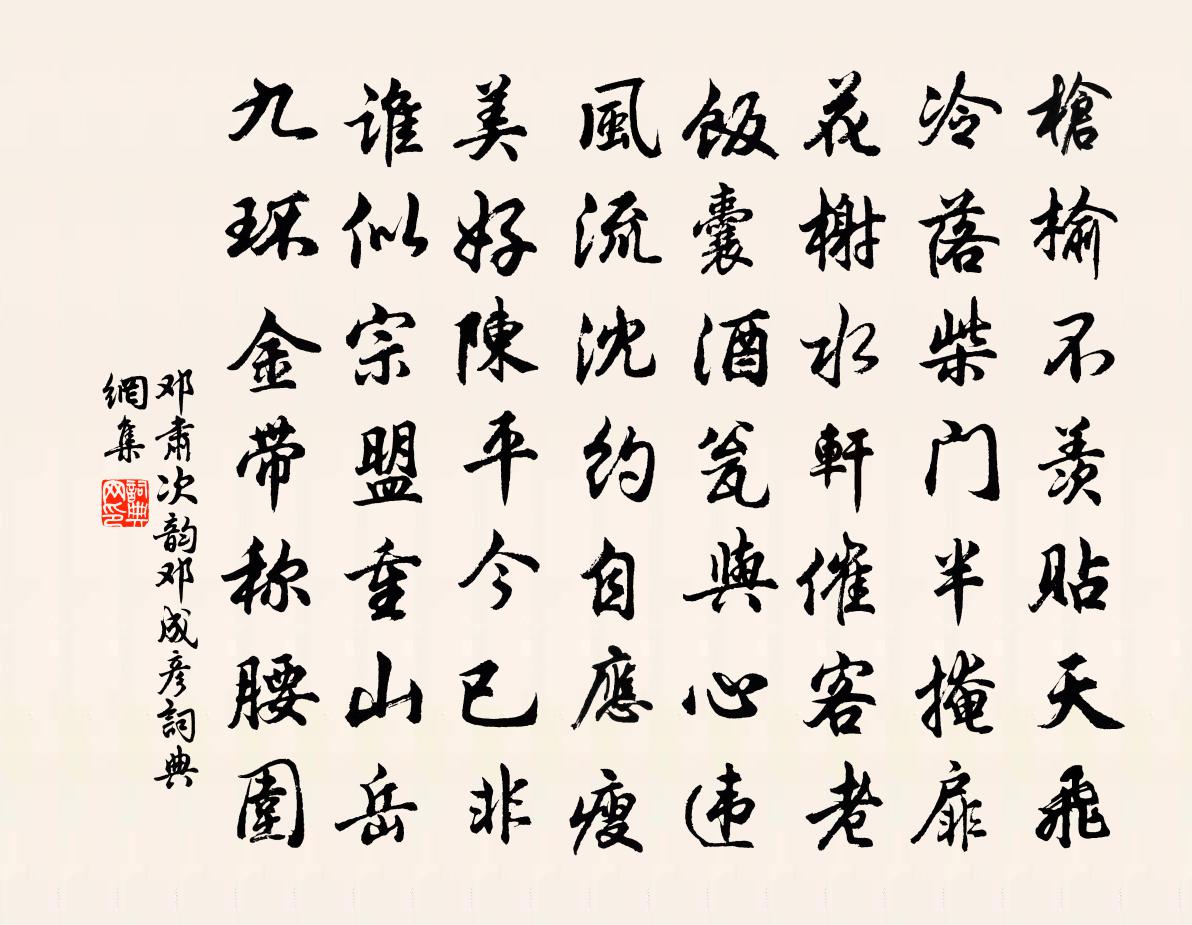 槍榆不羨貼天飛
冷落柴门半掩扉
花榭水軒催客老
飯囊酒瓮與心违
風流沈約自應瘦
美好陳平今已非
誰似宗盟重山岳
九环金带称腰圍
邓肅次韵邓成彦詞典
網集
詞典
网印